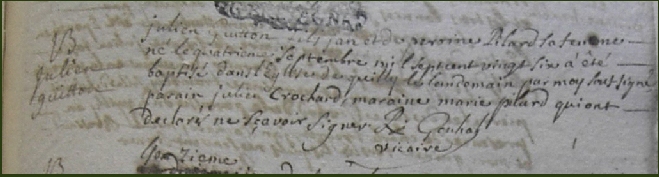 B
julien
guitton
julien guitton fils jan et de perrine Pilard sa femme
né le quatrieme septembre mil sept cent vingt six a été
baptisé dans l'eglise de quilly le lendemain par moy sous signé
parain julien Crochard maraine marie plard qui ont
declaré ne sçavoir signer
vicaire
B